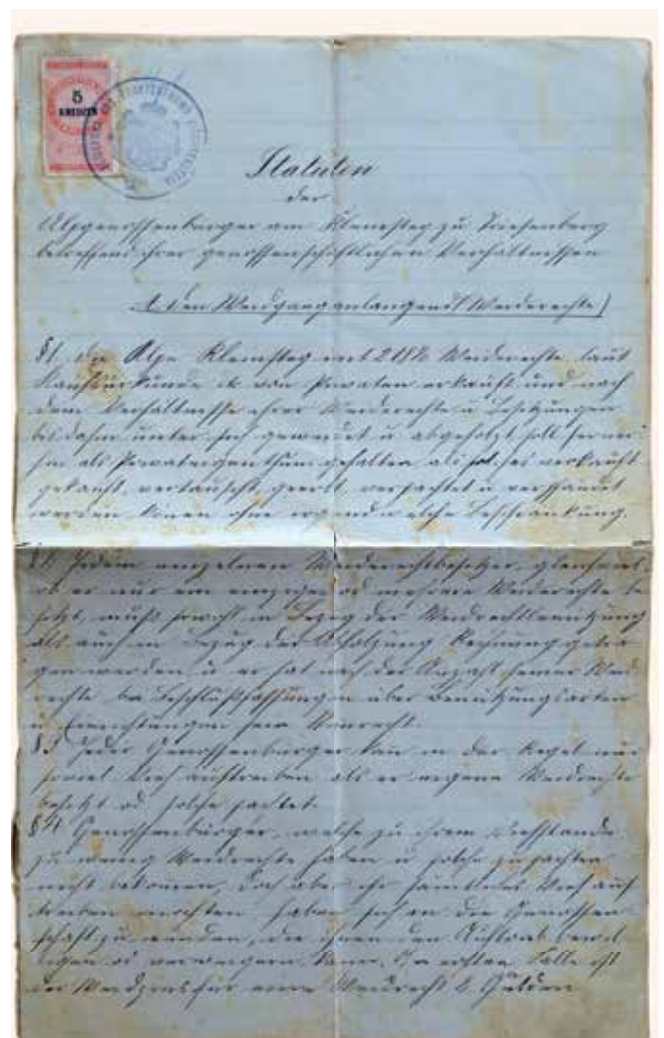 5
KREUZER
Statuten
der
Alpgenossenbürger am Kleinsteg zu Triesenberg
betreffend ihrer genossenschaftlichen Verhältnissen
den Weidgang anlangend (Weiderechte)
§1. die Alpe Kleinsteg mit 218½ Weiderechte laut
Kaufsurkunde ist von Privaten erkauft und nach
dem Verhältnisse ihrer Weiderechte u Besitzungen
bis dahin unter sich geweidet u abgeholzt soll ferner
hin als Privateigenthum gehalten als solches verkauft
gekauft, vertauscht, geerbt verpachtet u verpfändet
werden können ohne irgend welche Beschränkung.
§2 Jedem einzelnen Weiderechtbesitzer gleichviel
ob er nur ein einziges od mehrere Weiderechte be
sitzt, muß sowohl in Bezug der Weidrechtbenützung
als auch in Bezug der Abholzung Rechnung getra
gen werden u er hat nach der Anzahl seiner Weid
rechte bei Beschlußfassungen über Benützungsarten
u Einrichtungen sein
§3 Jeder Genossenbürger kan in der Regel nur
soviel Vieh auftreiben als er eigene Weidrechte
besitzt od solche pachtet.
§4 Genossenbürger, welche zu ihrem Viehstande
zu wenig Weidrechte haben u solche zu pachten
nicht bekomen, doch aber ihr sämtliches Vieh auf
treiben möchten haben sich an die Genossen
schaft zu wenden, die ihnen den Auftrieb bewil
ligen od verweigern kann. Im ersten Falle ist
der Weidzins für ein Weidrecht Gulden